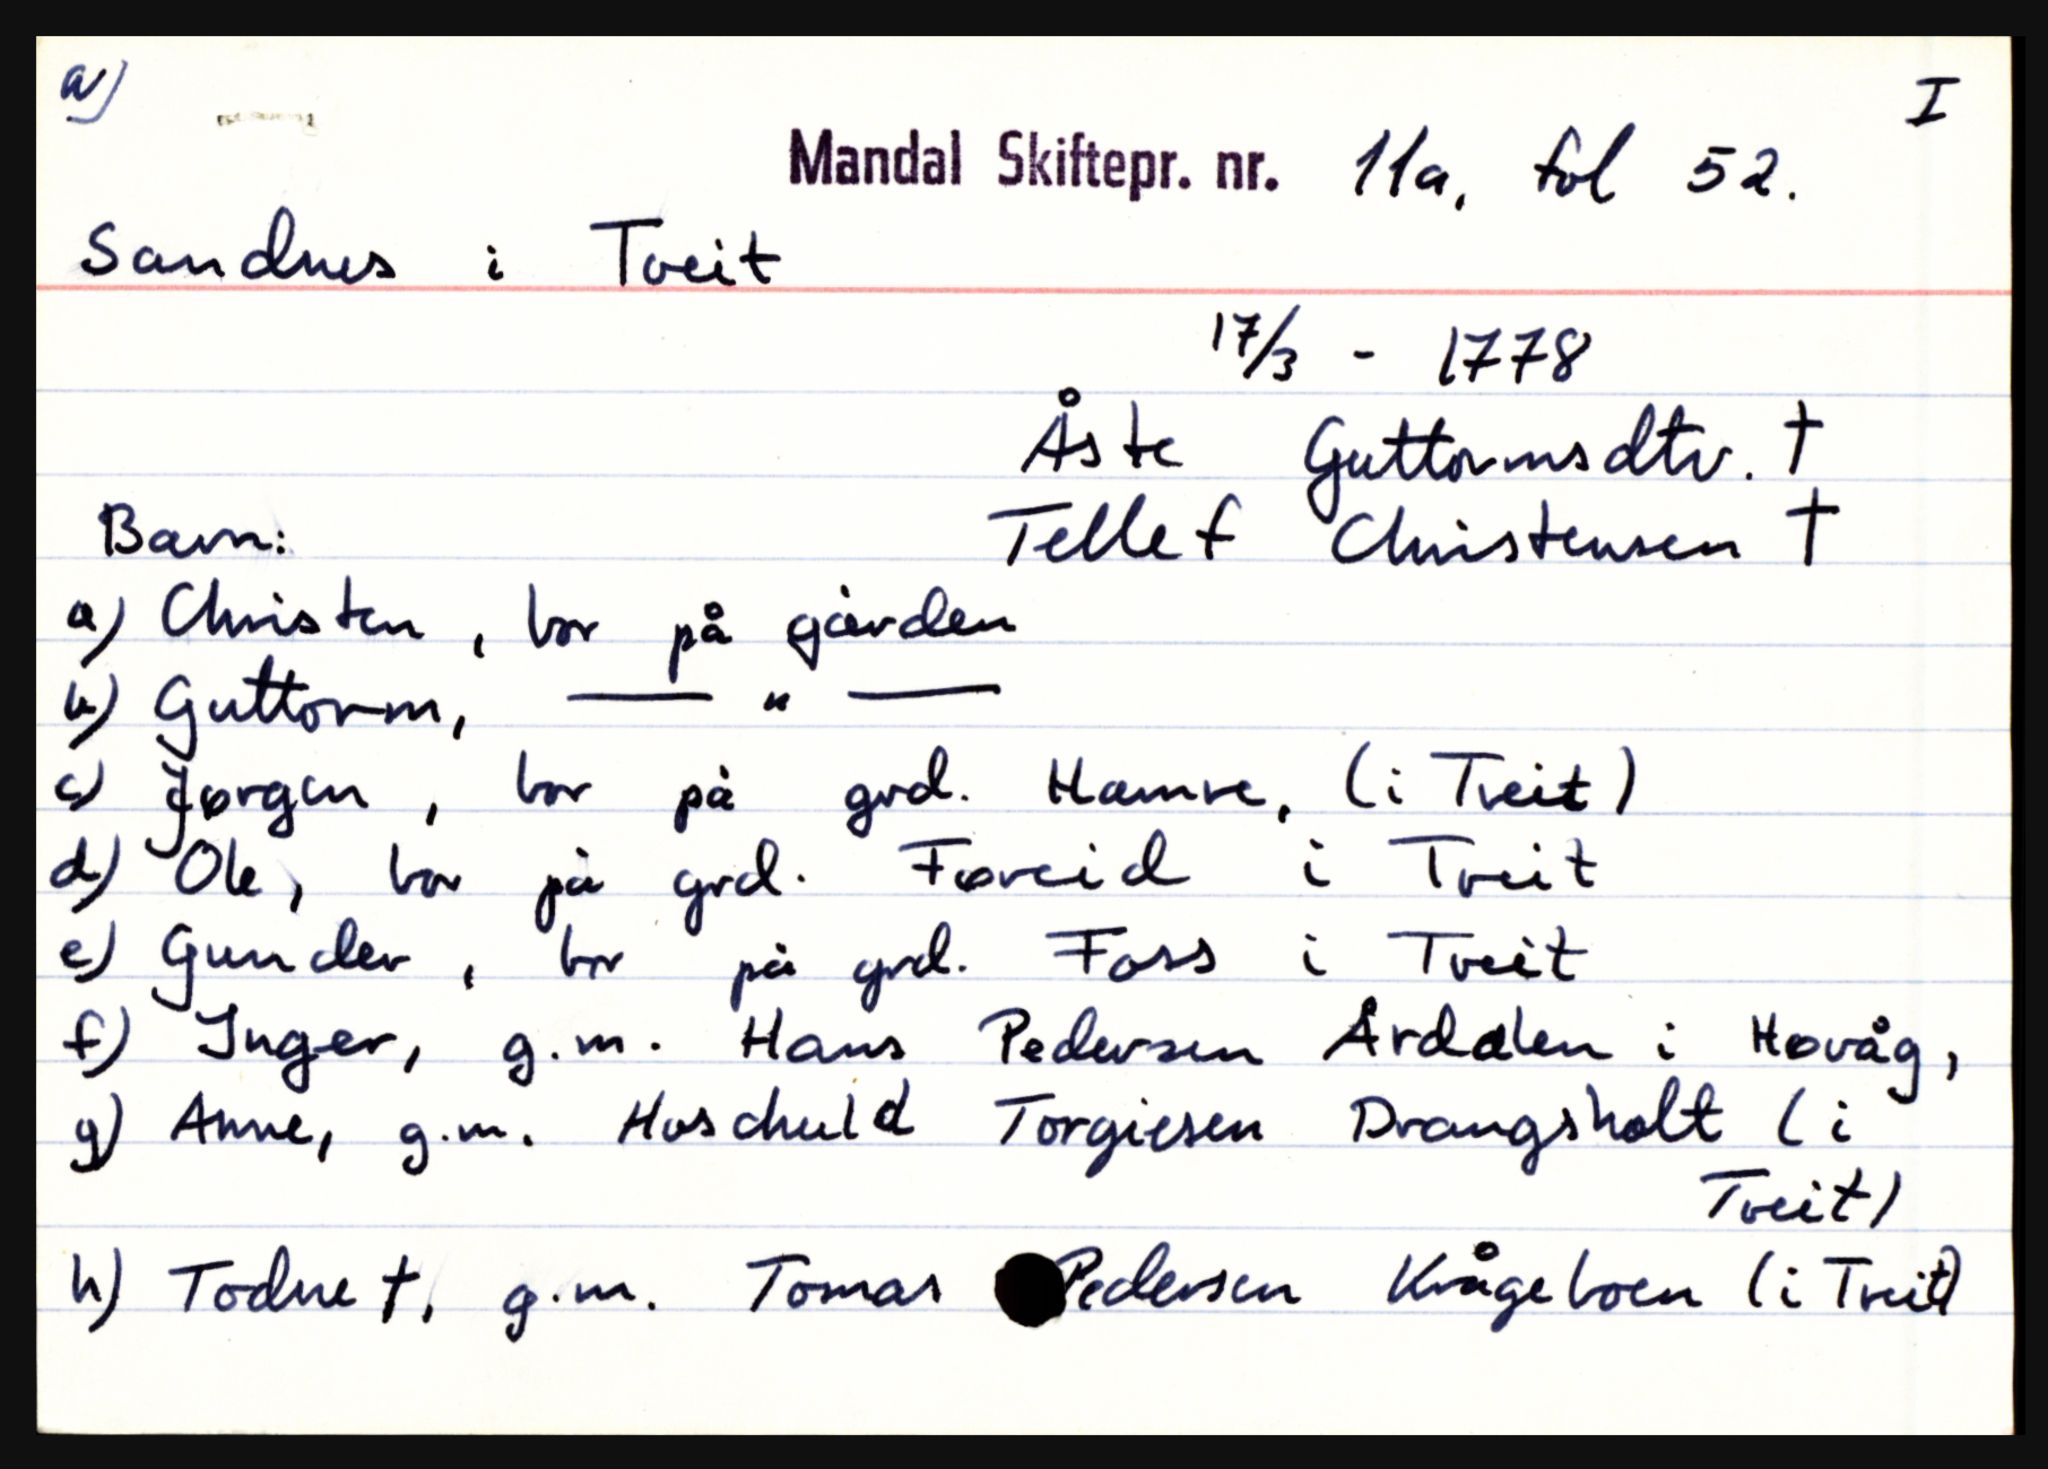 a)
I
Mandal Skiftepr. nr. 11a, fol 52.
Sandnes i Tveit
17/3 - 1778
Åste Guttormsdtr. †
Tellef Christensen †
Barn:
a) Christen, bor på gården
b) Guttorm, —— " ——
c) Jørgen, bor på grd. Hamre, (i Tveit)
d) Ole, bor på grd. Føreid i Tveit
e) Gunder, bor på grd. Foss i Tveit
f) Inger, g.m. Hans Pedersen Årdalen i Høvåg,
g) Anne, g.m. Hoschuld Torgiesen Drangsholt (i
Tveit)
h) Todne †, g.m. Tomas Pedersen Krågeboen (i Tveit)